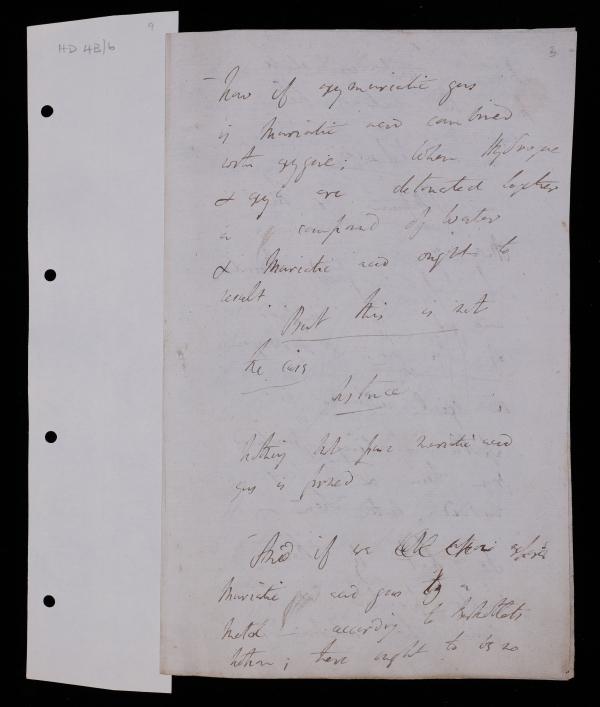 9
HD 4B/6
3
– Now if oxymuriatic gas
is Muriatic acid combined
with oxygene; When Hydrogene
& oxy are detonated together
a compound of Water
& Muriatic acid ought to
result.
But this is not
the case
Instance
Nothing but pure muriatic acid
gas is formed
– And if we
Muriatic acid gas by a
Metal – according to Berthollets
notion; there ought to be no